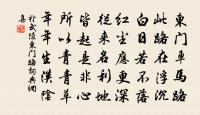 東門車馬路
此路在浮沉
白日若不落
紅塵應更深
從來名利地
皆起是非心
所以青青草
年年生漢陰
於武陵東門路詞典網
集